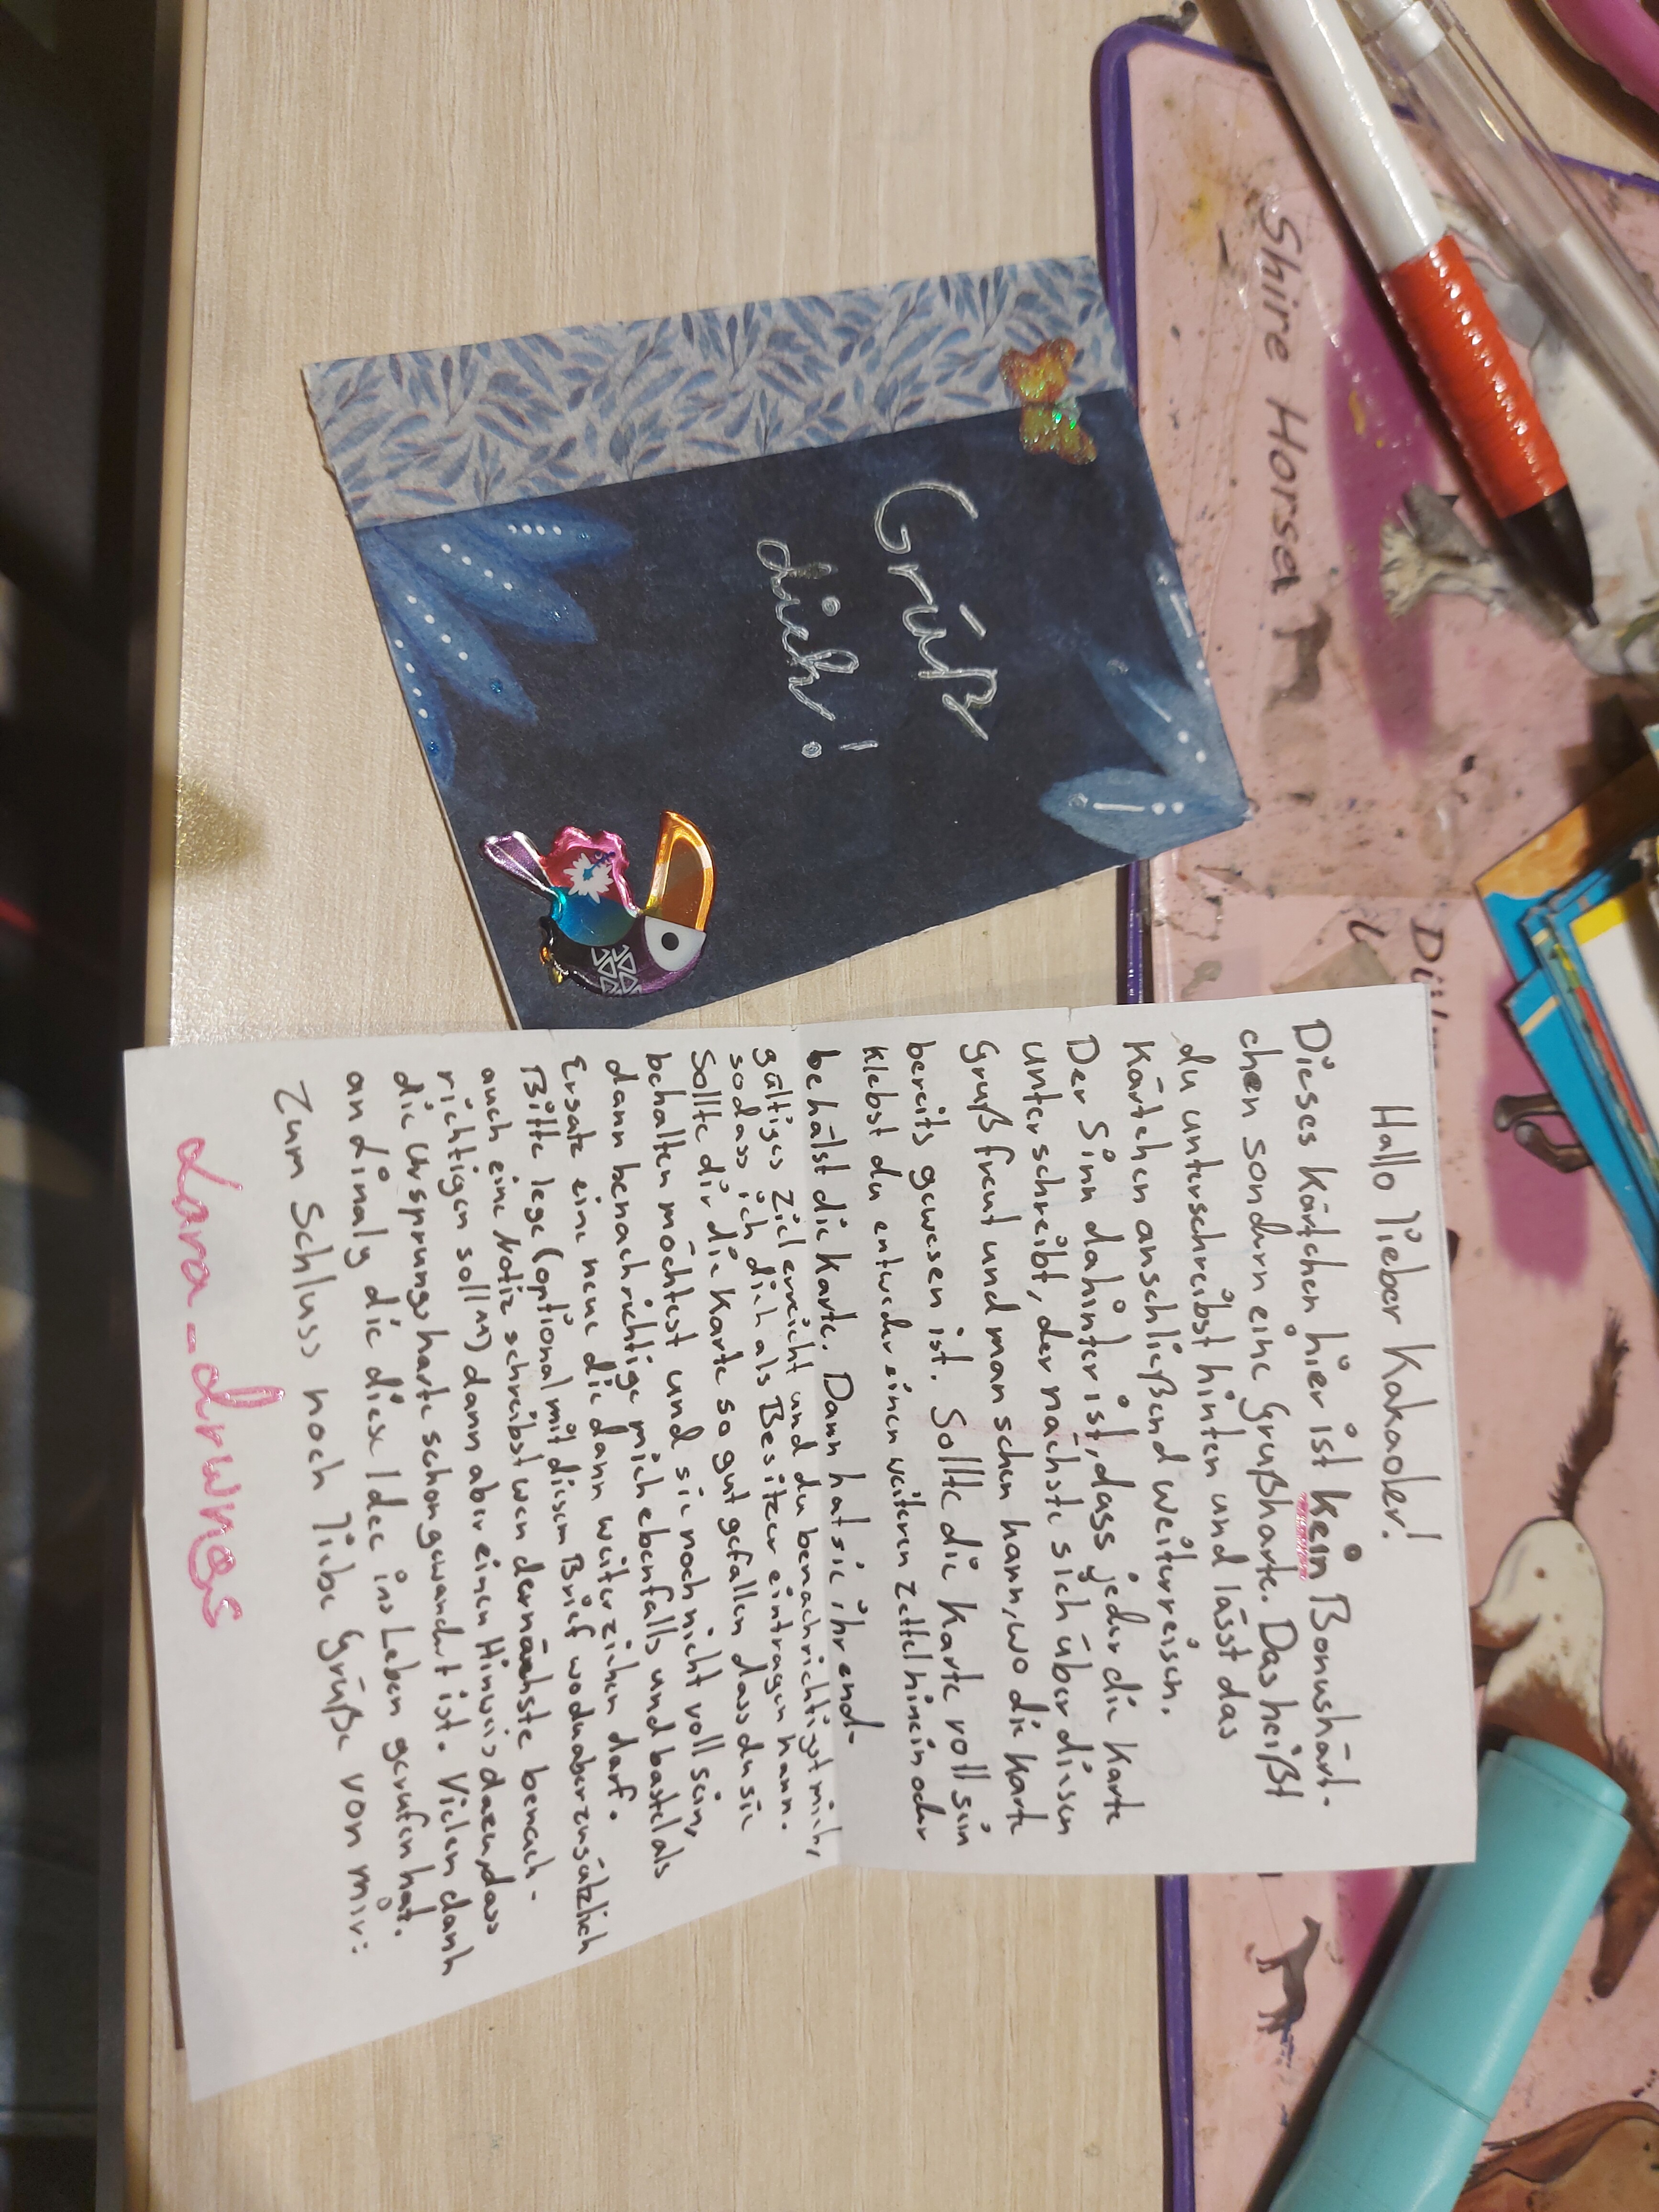 Grüß
dich!
Hallo lieber Kakaoler!
Dieses Kärtchen hier ist kein Bonuskärt-
chen sondern eine Grußkarte. Das heißt
du unterschreibst hinten und lässt das
Kärtchen anschließend weiterreisen.
Der Sinn dahinter ist, dass jeder die Karte
unterschreibt, der nächste sich über diesen
Gruß freut und man sehen kann, wo die Karte
bereits gewesen ist. Sollte die Karte voll sein
klebst du entweder einen weiteren Zettel hinein oder
behälst die Karte. Dann hat sie ihr end-
gültiges Ziel erreicht und du benachrichtigst mich,
sodass ich dich als Besitzer eintragen kann.
Sollte dir die Karte so gut gefallen dass du sie
behalten möchtest und sie noch nicht voll sein,
dann benachrichtige mich ebenfalls und bastel als
Ersatz eine neue die dann weiterziehen darf.
Bitte lege (optional mit diesem Brief wo du aber zusätzlich
auch eine Notiz schreibst wen der nächste benach-
richtigen soll) dann aber einen Hinweis dazu, dass
die Ursprungskarte schon gewandert ist. Vielen dank
an die diese Idee ins Leben gerufen hat.
Zum Schluss noch liebe Grüße von mir:
Lara_drwngs
Shire Horse